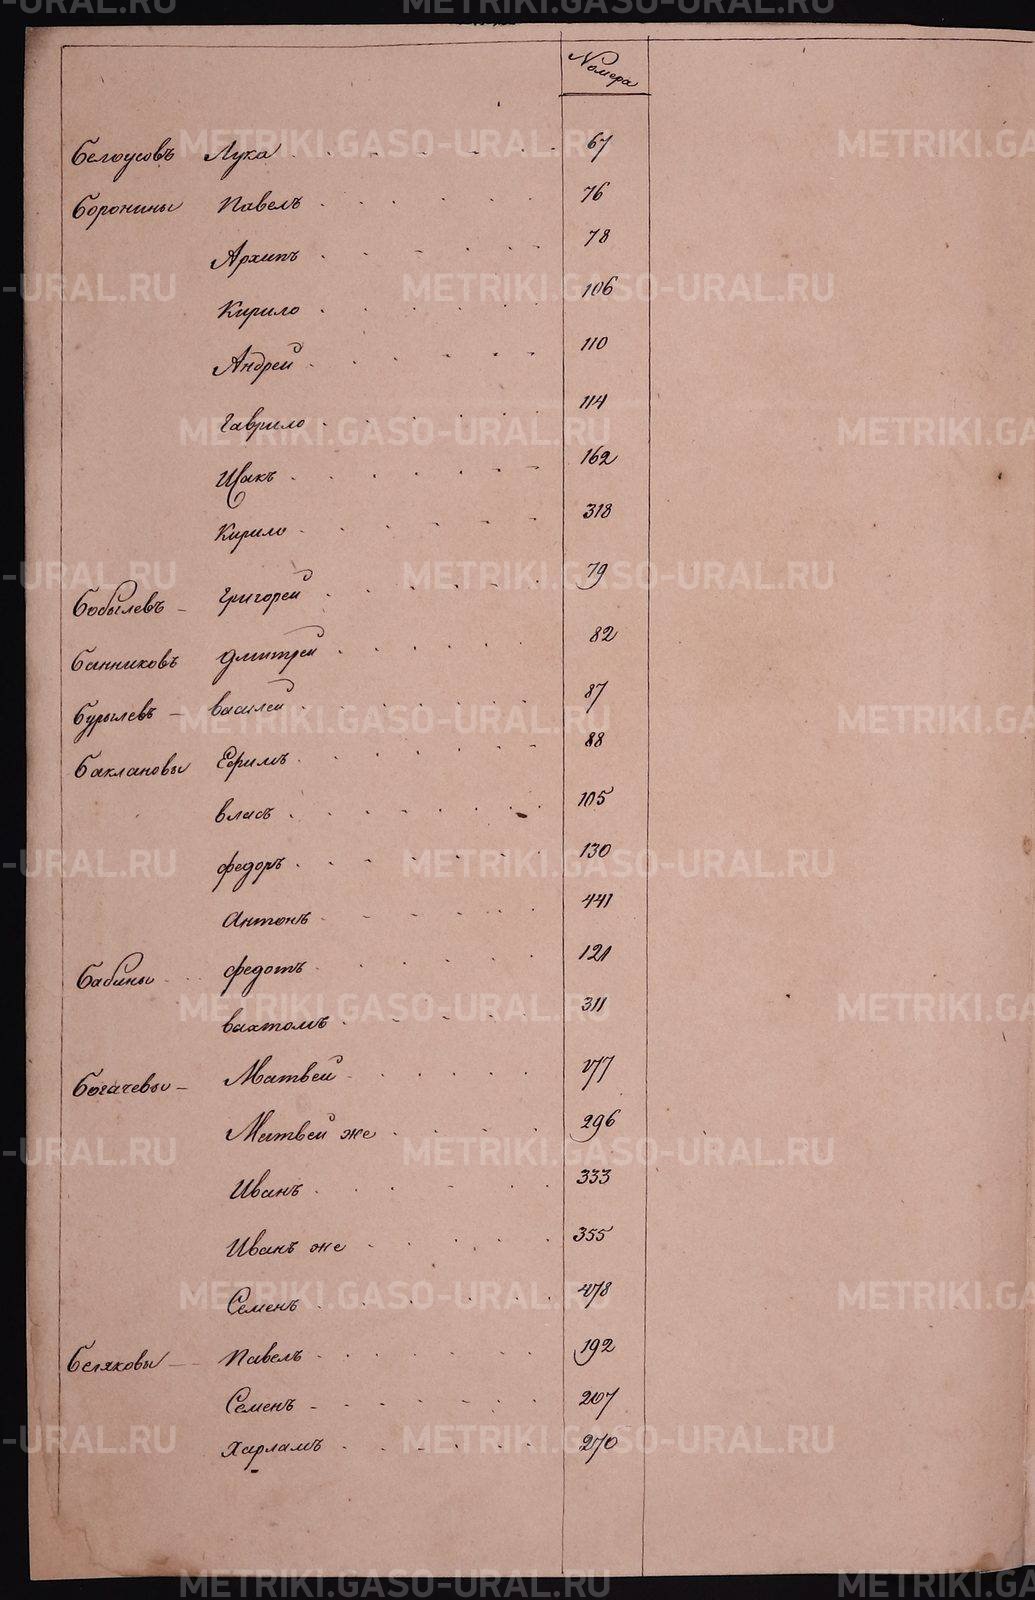 Номера
Белоусовъ Лука 67
Боронины Павелъ 76
Архипъ 78
Кирило 106
Андрей 110
Гаврило 114
Исакъ 162
Кирило 318
Бобылевъ Григорей 79
Банниковъ Дмитрей 82
Бурылевъ Василей 87
Баклановы Ефимъ 88
Власъ 105
Федоръ 130
Антонъ 441
Бабины Федотъ 121
311
Богачевы Матвей
Матвей же 296
Иванъ 333
Иванъ же 355
Семенъ 478
Беляковы Павелъ 192
Семенъ 207
Харламъ 270
METRIKI.GASO-URAL.RU